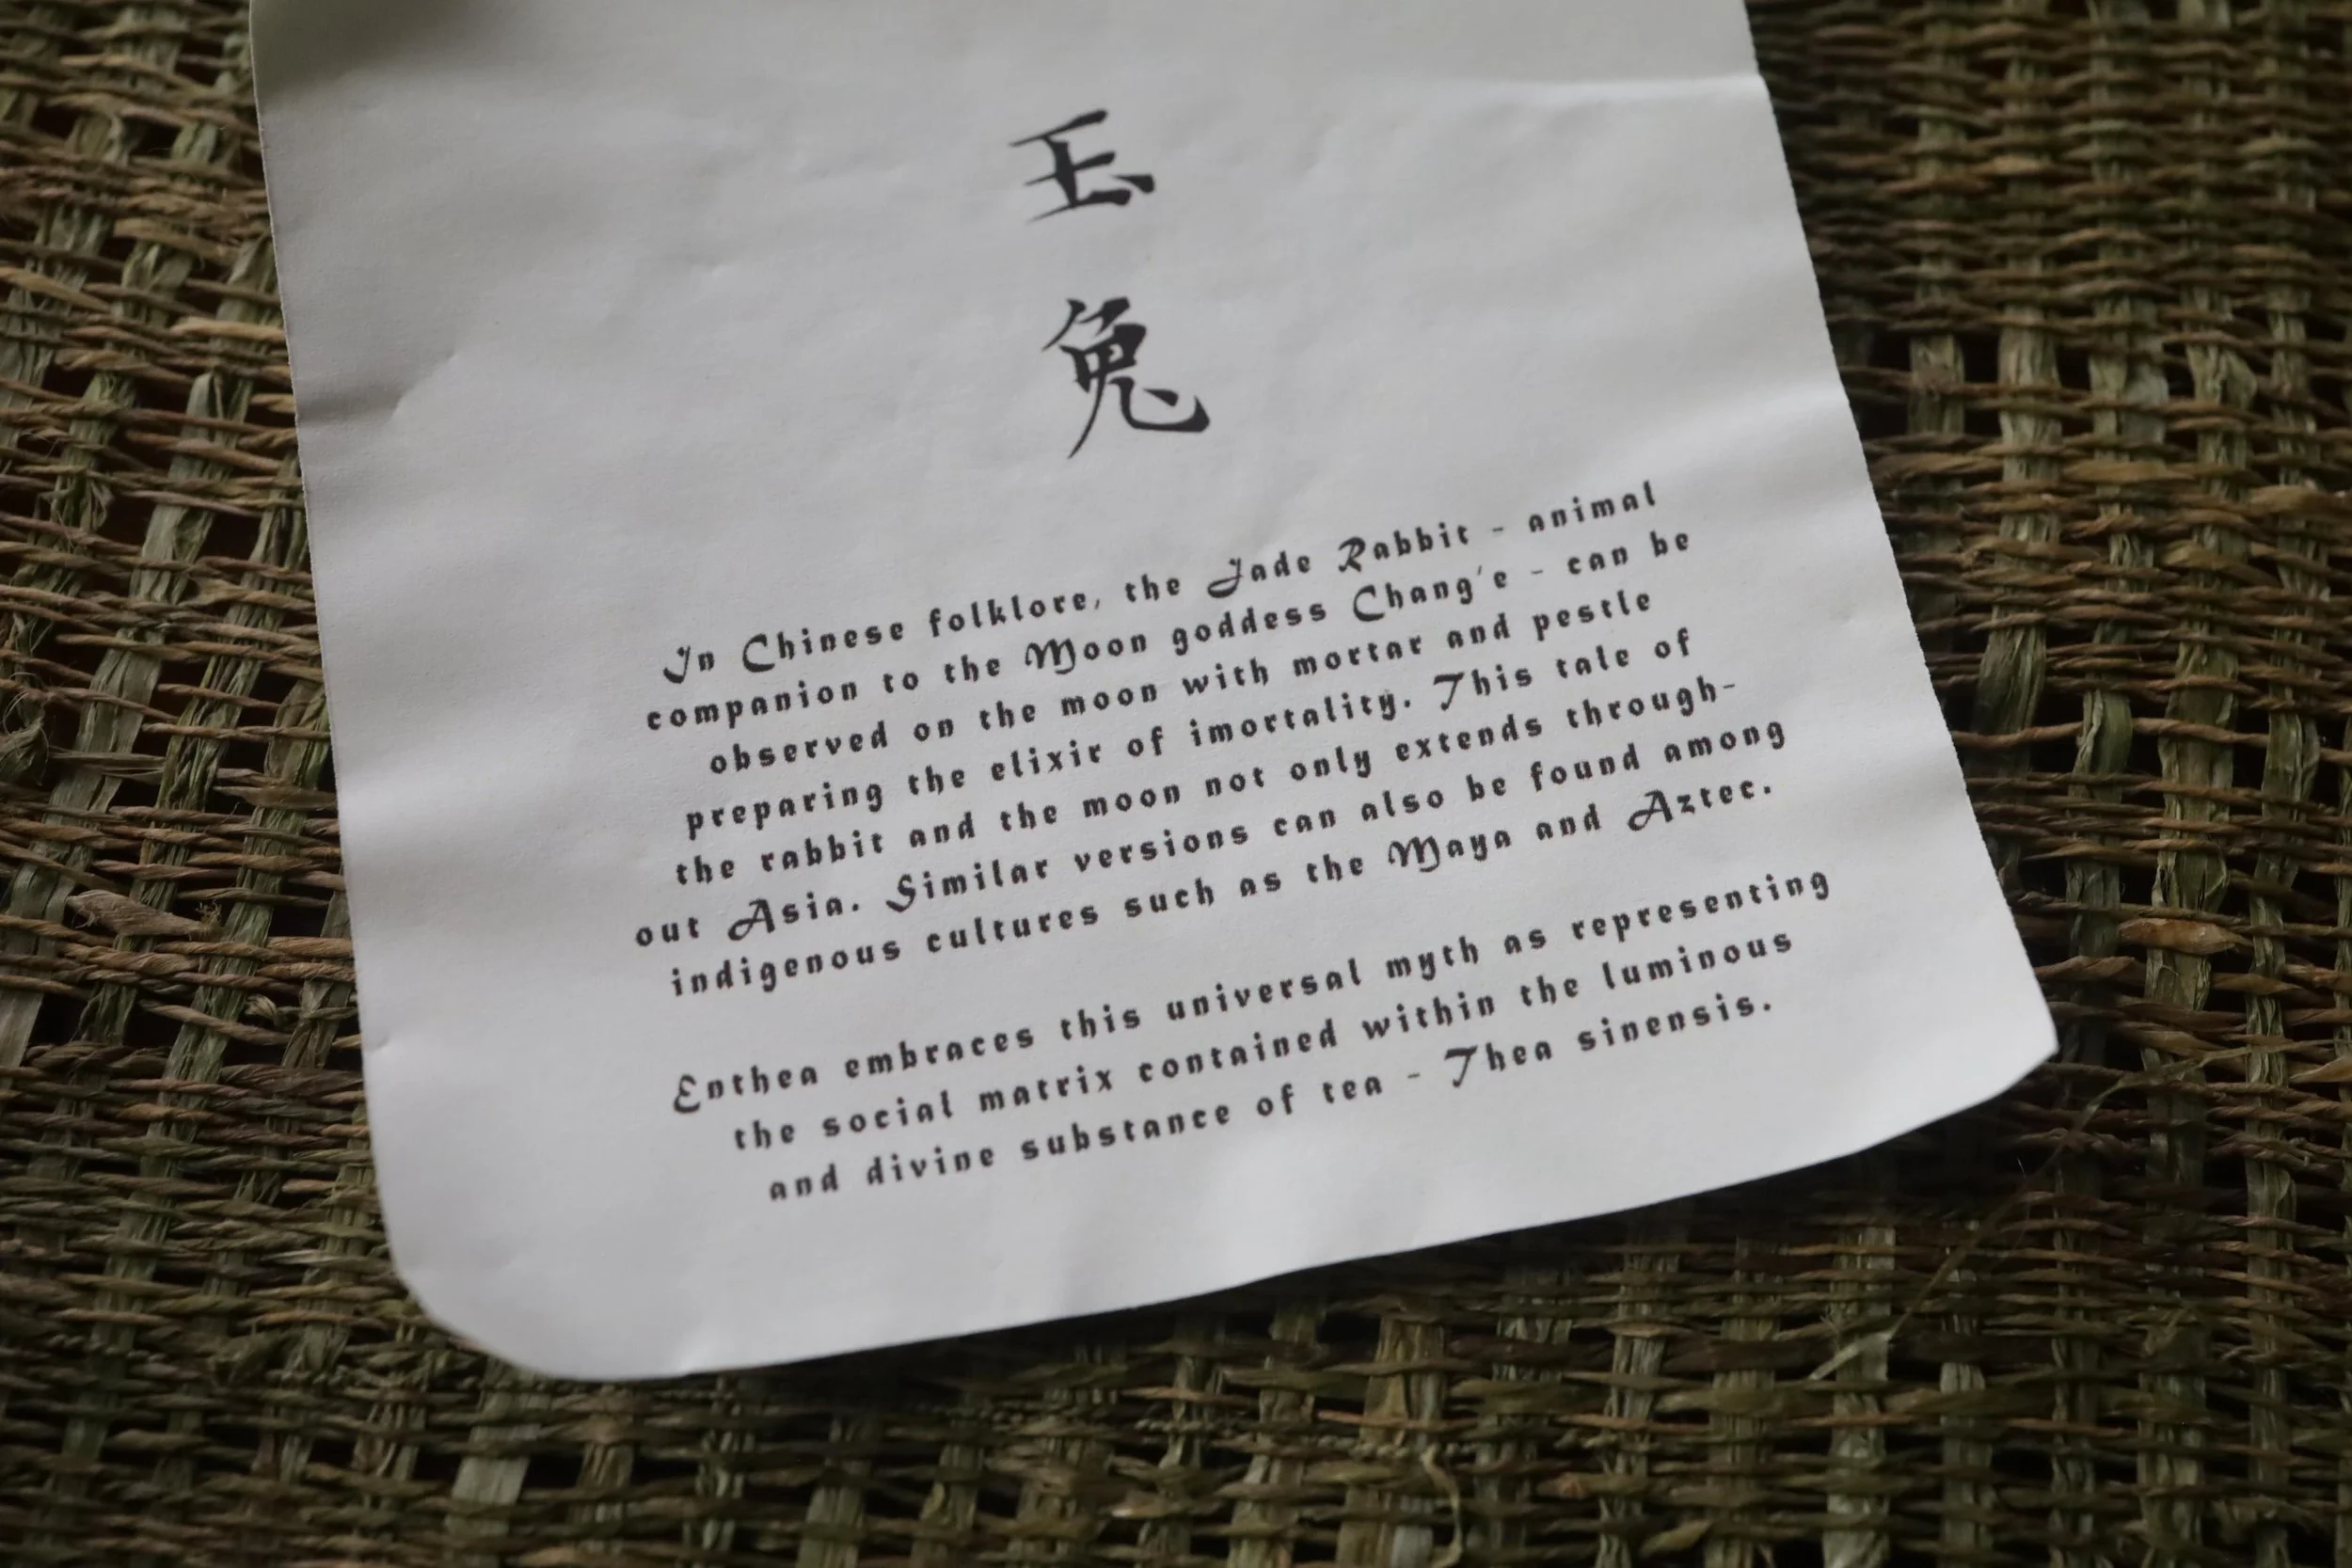 玉
兔
In Chinese folklore, the Jade Rabbit - animal
companion to the Moon goddess Chang'e - can be
observed on the moon with mortar and pestle
preparing the elixir of imortality. This tale of
the rabbit and the moon not only extends through-
out Asia. Similar versions can also be found among
indigenous cultures such as the Maya and Aztec.
Enthea embraces this universal myth as representing
the social matrix contained within the luminous
and divine substance of tea - Thea sinensis.